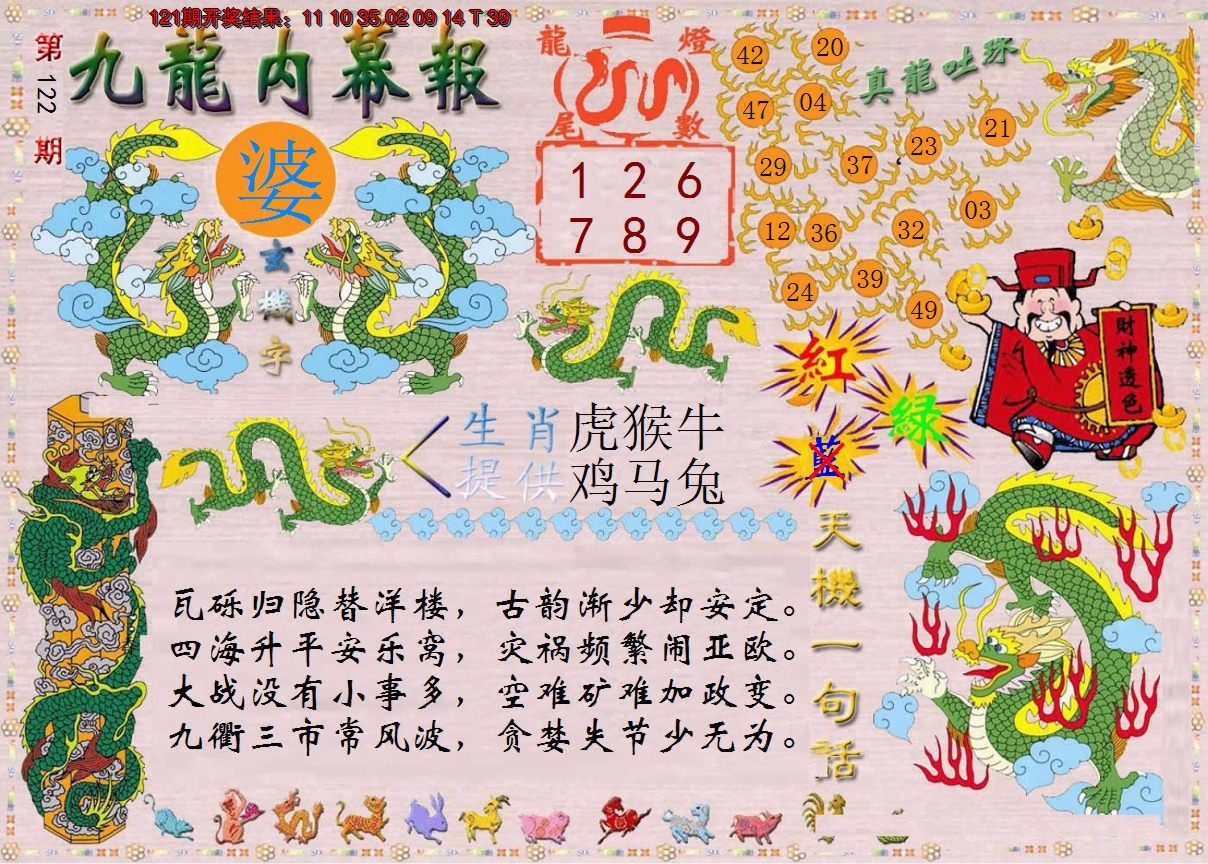 121期开奖结果：11 10 35 02 09 14 T 39
第122期
九龍内幕報
婆
玄機字
龍燈
尾數
1 2 6
7 8 9
真龍吐珠
42
20
47
04
21
23
29
37
03
12
36
32
39
24
49
財神透色
紅
綠
藍
生肖 虎猴牛
提供 鸡马兔
天機一句話
瓦砾归隐替洋楼，古韵渐少却安定。
四海升平安乐窝，灾祸频繁闹亚欧。
大战没有小事多，空难矿难加政变。
九衢三市常风波，贪婪失节少无为。